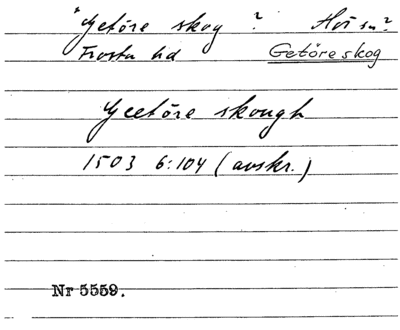 *Getöre skog ? Hör sn?
Frosta hd Getöre skog
Geetöre skough
1503 6:104 (avskr.)
Nr 5559.